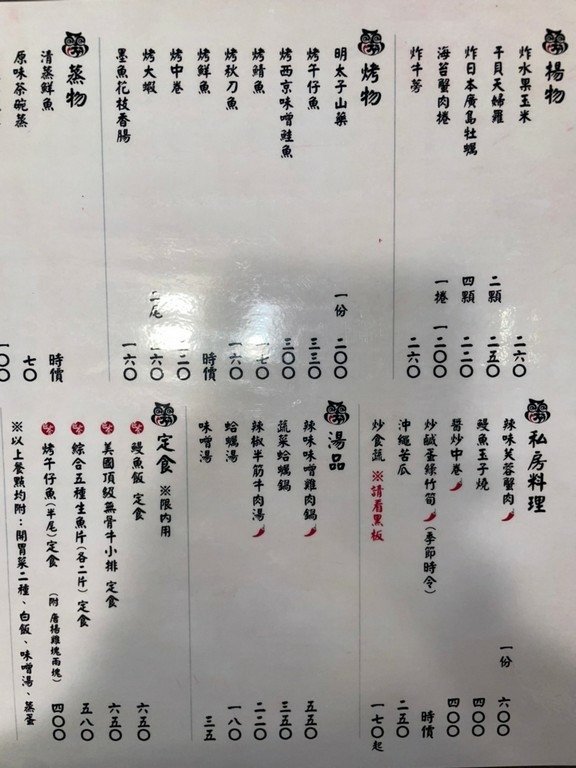 揚物
炸水果玉米 二六〇
干貝天婦羅 二顆 二五〇
炸日本廣島牡蠣 四顆 二二〇
海苔蟹肉捲 一捲 一二〇〇
炸牛蒡 二六〇
烤物
明太子山藥 一份 二〇〇
烤午仔魚 三三〇
烤西京味噌鮭魚 三〇〇
烤鯖魚 一七〇
烤秋刀魚 一六〇
烤鮮魚 時價
烤中卷 二二〇
烤大蝦 二尾 二六〇
墨魚花枝香腸 一六〇
蒸物
清蒸鮮魚 時價
原味茶碗蒸 七〇
一〇〇
私房料理
辣味芙蓉蟹肉 一份 六〇〇
鰻魚玉子燒 四〇〇
醬炒中卷 四〇〇
炒鹹蛋綠竹筍 (季節時令) 時價
沖繩苦瓜 二五〇
炒食蔬 ※請看黑板 一七〇起
湯品
辣味味噌雞肉鍋 五五〇
蔬菜蛤蠣鍋 三五〇
辣椒半筋牛肉湯 二二〇
蛤蠣湯 一八〇
味噌湯 三五
定食 ※限內用
鰻魚飯 定食 六五〇
美國頂級無骨牛小排 定食 六五〇
綜合五種生魚片(各二片)定食 五八〇
烤午仔魚(半尾)定食 (附 唐揚雞塊兩塊) 四〇〇
※以上餐點均附：開胃菜二種、白飯、味噌湯、蒸蛋